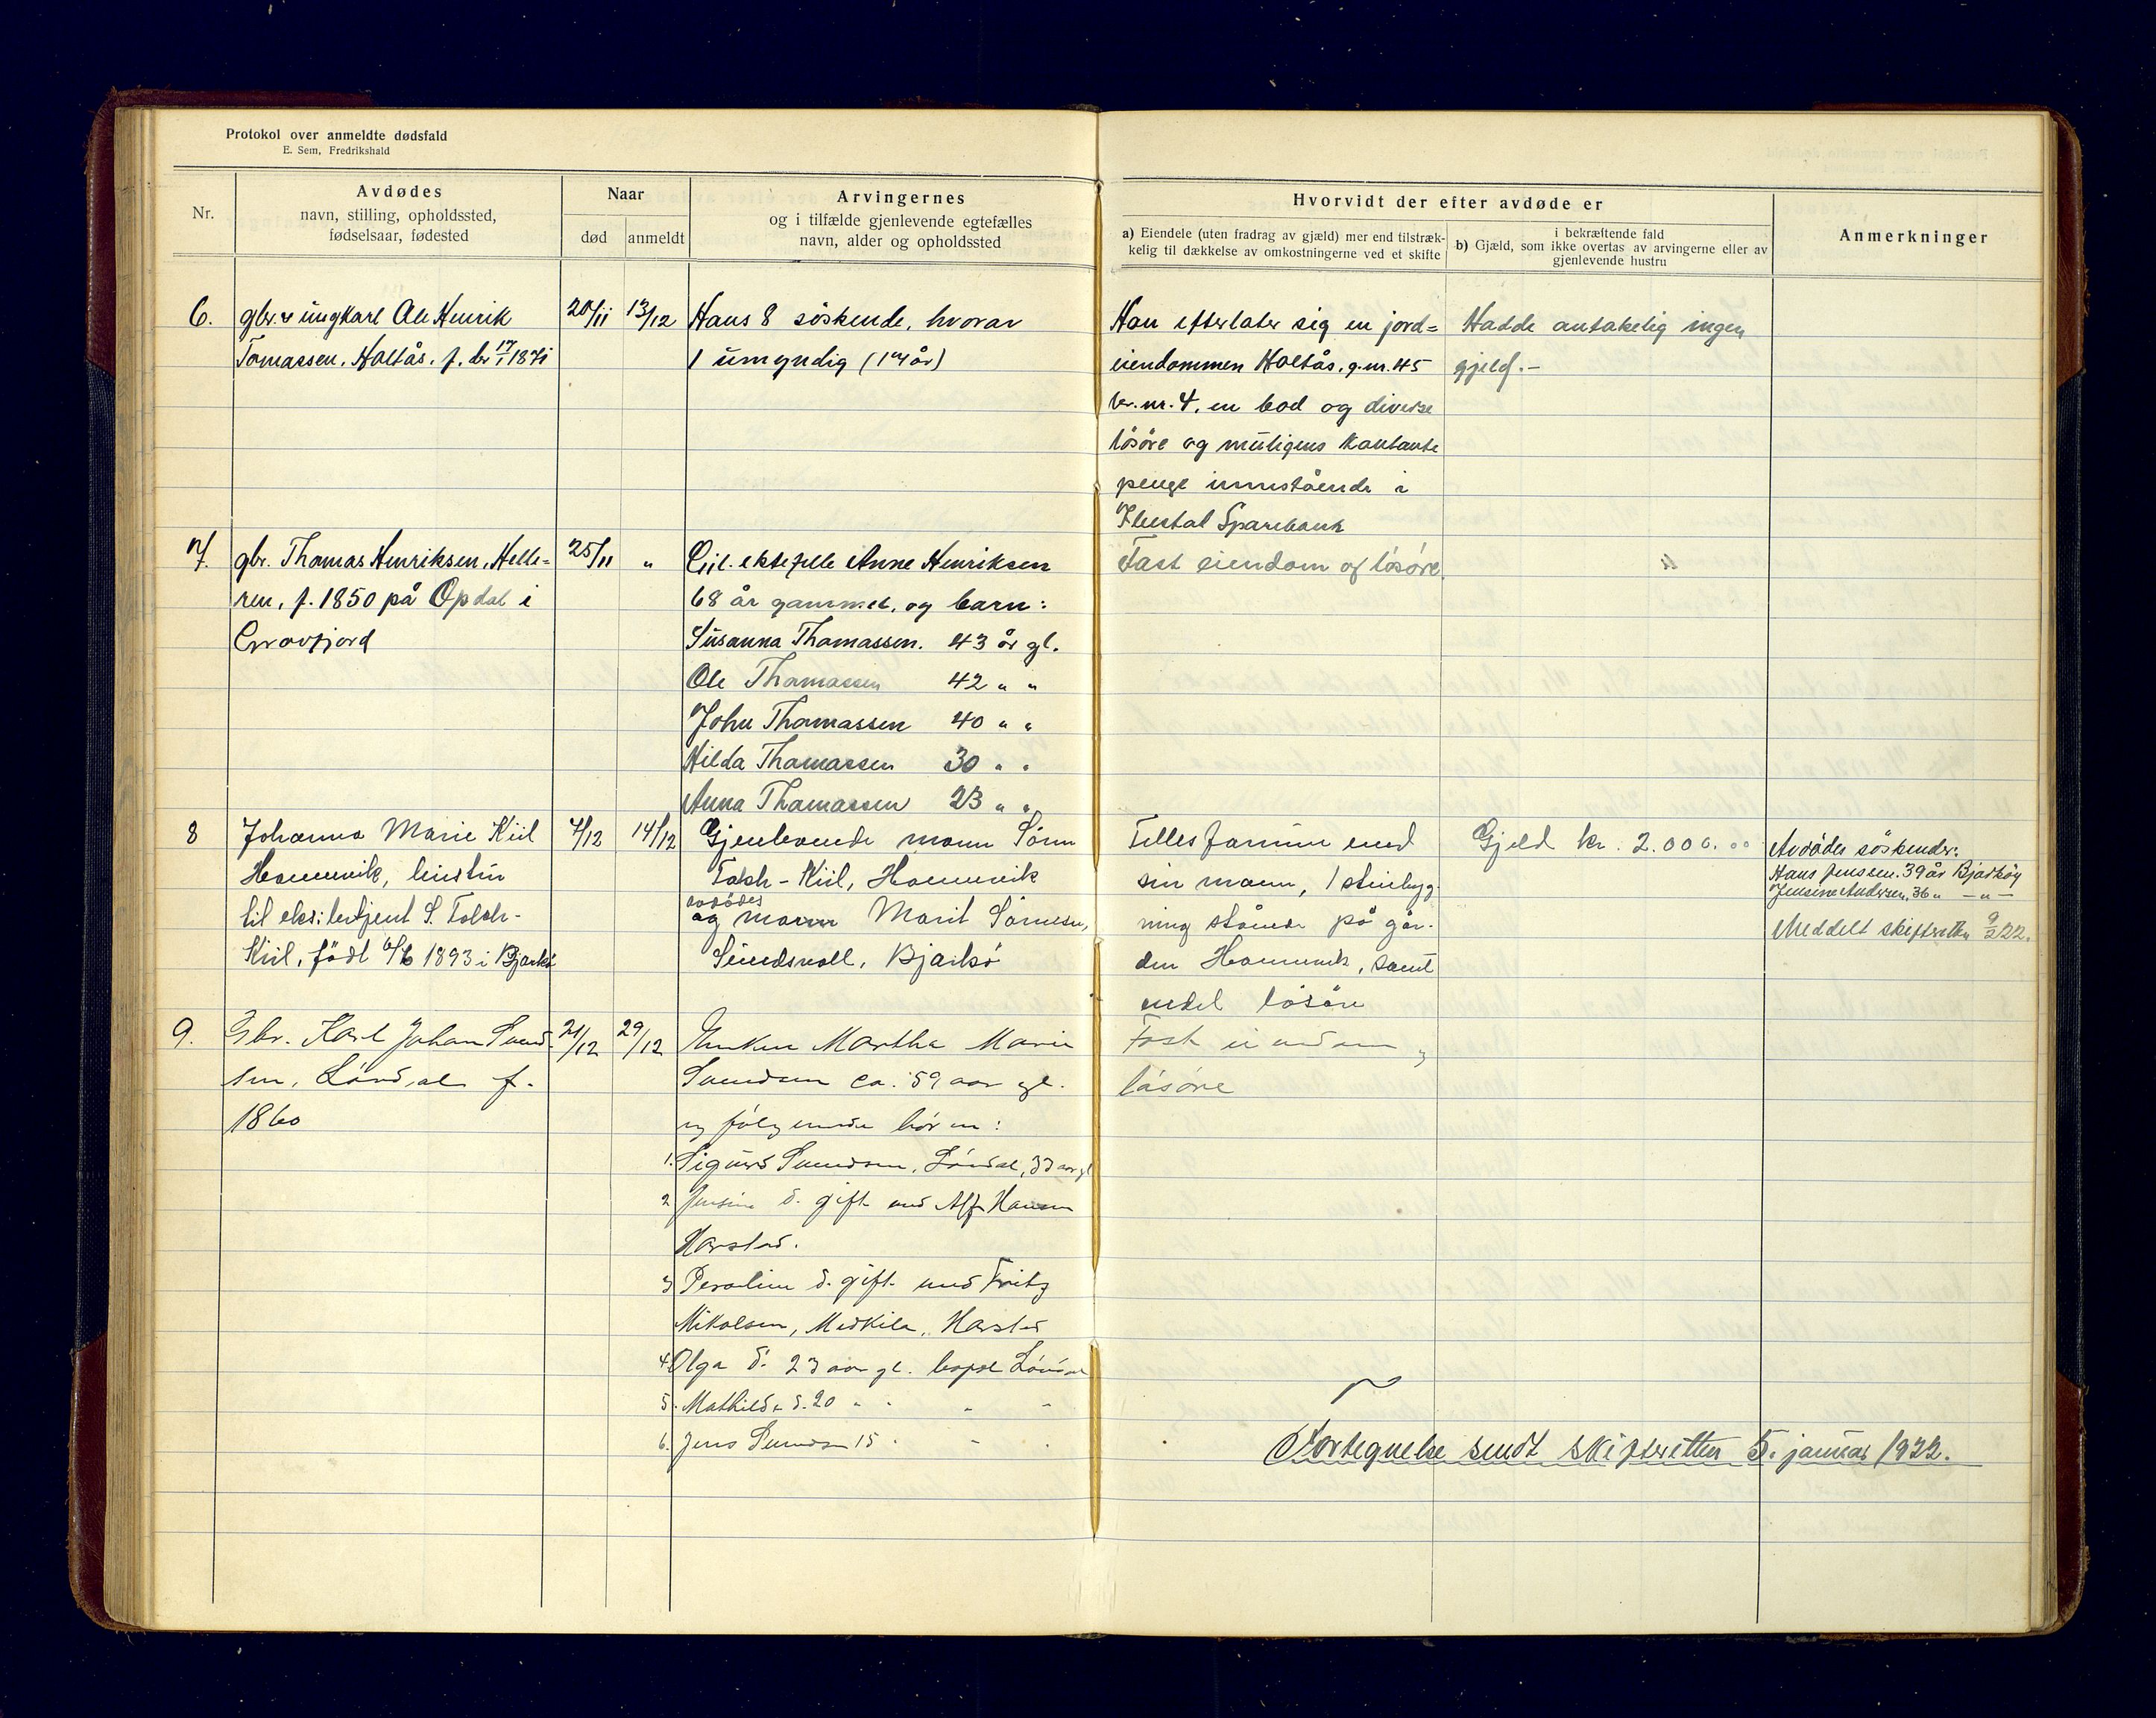 Protokol over anmeldte dødsfald
E. Sem, Fredrikshald
Nr.
Avdødes
navn, stilling, opholdssted,
fødselsaar, fødested
Naar
død
anmeldt
Arvingernes
og i tilfælde gjenlevende egtefælles
navn, alder og opholdssted
Hvorvidt der efter avdøde er
a) Eiendele (uten fradrag av gjæld) mer end tilstræk-
kelig til dækkelse av omkostningerne ved et skifte
i bekræftende fald
b) Gjæld, som ikke overtas av arvingerne eller av
gjenlevende hustru
Anmerkninger
6.
gbr. & ungkarl Ole Henrik
Tomassen, Holtås. f. der 17/1 1871
20/11
13/12
Hans 8 søskende, hvorav
1 umyndig (17 år)
Han efterlater sig en jord=
eiendommen Holtås, g.nr. 45
br. nr. 4, en bod og diverse
løsøre og muligens kontante
penge innestående i
Ibestad Sparebank
Hadde antakelig ingen
gjeld. -
7.
gbr. Thomas Henriksen, Helle=
ren, f. 1850 på Opdal i
Gravfjord
25/11
"
Gjl. ektefelle Anne Henriksen
68 år gammel, og barn:
Susanna Thomassen. 43 år gl.
Ole Thomassen 42 " "
John Thomassen 40 " "
Hilda Thomassen 30 " "
Anna Thomassen 23 " "
Fast eiendom og løsøre.
"
8
Johanna Marie Kiil
Hamnvik, hustru
til eks: betjent S. Falch-
Kiil, født 6/6 1893 i Bjarkö
7/12
14/12
Gjenlevende mann Sörn
Falch - Kiil, Hamnvik
avdødes
og mor Marit Sörensen,
Sundsvoll, Bjarkö
Felles formue med
sin mann, 1 stenbyg-
ning stående på går-
den Hamnvik, samt
endel løsøre
Gjeld kr. 2.000.00
Avdødes söskender:
Hans Jenssen. 39 år Bjarköy
Jensine Andersen, 36 " — " —
Meddelt skifteretten 9/2 22.
9.
Gbr. Karl Johan Svend-
sen, Løvdal f.
1860
21/12
29/12
Enken Martha Marie
Svendsen ca. 59 aar gl.
og følgende børn:
1. Sigurd Svendsen, Løvdal, 33 aar gl
2 Jensine S. gift med Alf Hansen
Harstad.
3 Peroline S. gift med Fritz
Mikalsen, Medkila, Harstad
4 Olga S. 23 aar gl. bopæl Løvdal
5. Mathilde S. 20 " " " "
6. Jens Svendsen 15 " " "
Fast eiendom og
løsøre
Fortegnelse sendt skifteretten 5. januar 1922.